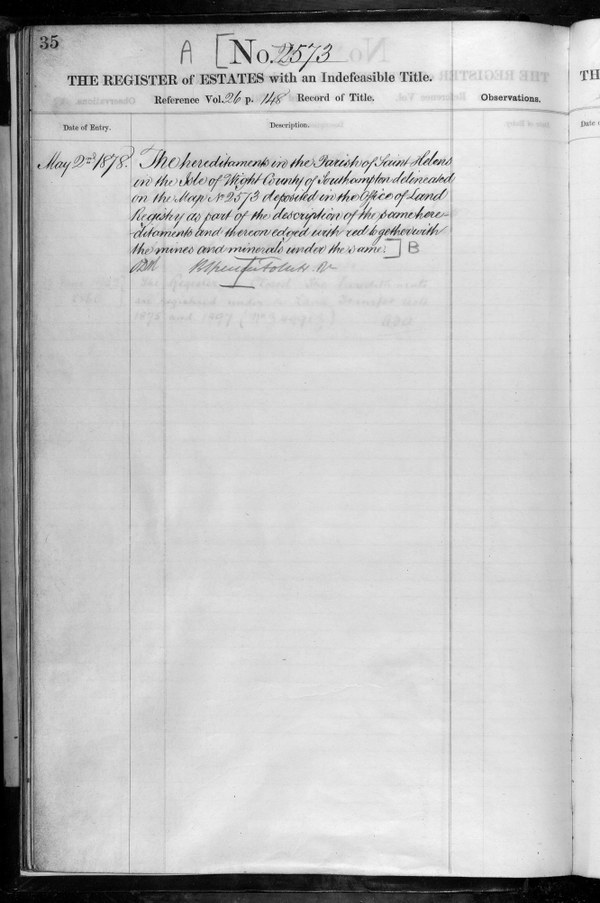 35
A [No. 2573
THE REGISTER of ESTATES with an Indefeasible Title.
Reference Vol. 26 p. 148 Record of Title.
Observations.
Date of Entry.
Description.
May 2nd 1878.
The hereditaments in the Parish of Saint Helens
in the Isle of Wight County of Southampton delineated
on the Map No 2573 deposited in the Office of Land
Registry as part of the description of the same here-
ditaments and thereon edged with red together with
the mines and minerals under the same.] B
1878 and 1897
TH
Date o